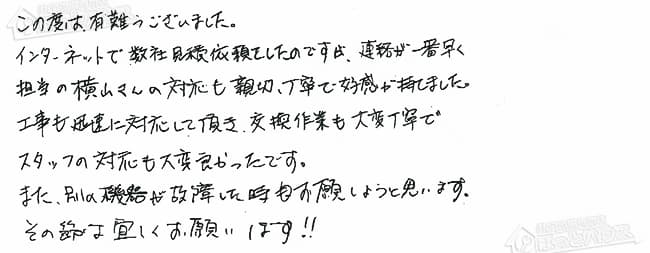 この度は、有難うございました。
インターネットで数社見積依頼をしたのですが、連絡が一番早く
担当の横山さんの対応も親切、丁寧で好感が持てました。
工事も迅速に対応して頂き、交換作業も大変丁寧で
スタッフの対応も大変良かったです。
また、別の機器が故障した時もお願しようと思います。
その節は宜しくお願いします!!